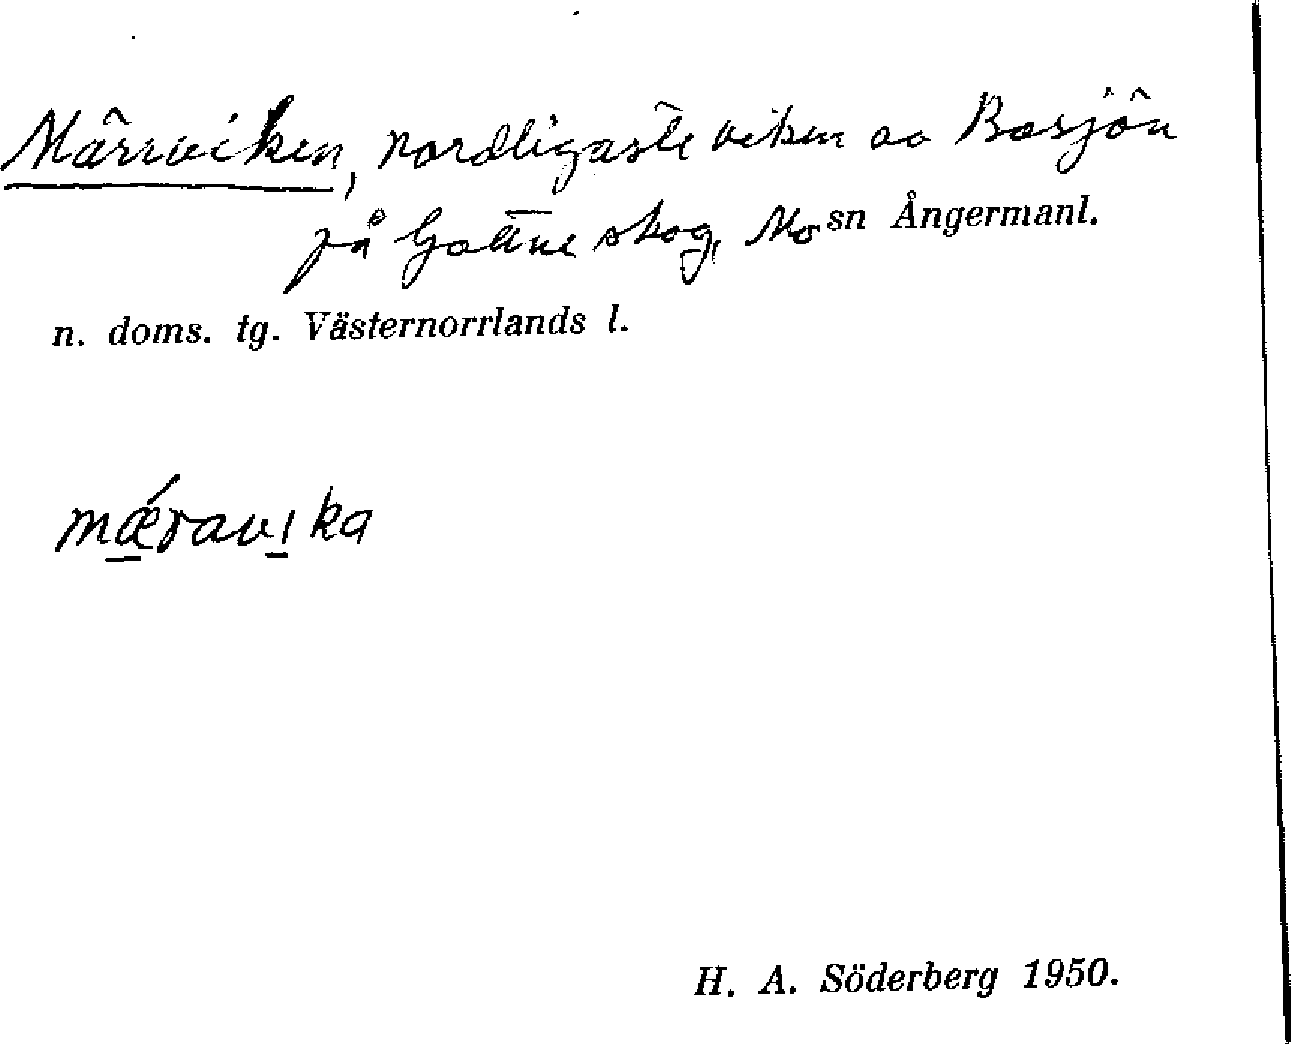 Märrviken, nordligaste viken av Basjön
på Gottne skog, Mo sn Ångermanl.
n. doms. tg. Västernorrlands l.
mǽravika
H. A. Söderberg 1950.